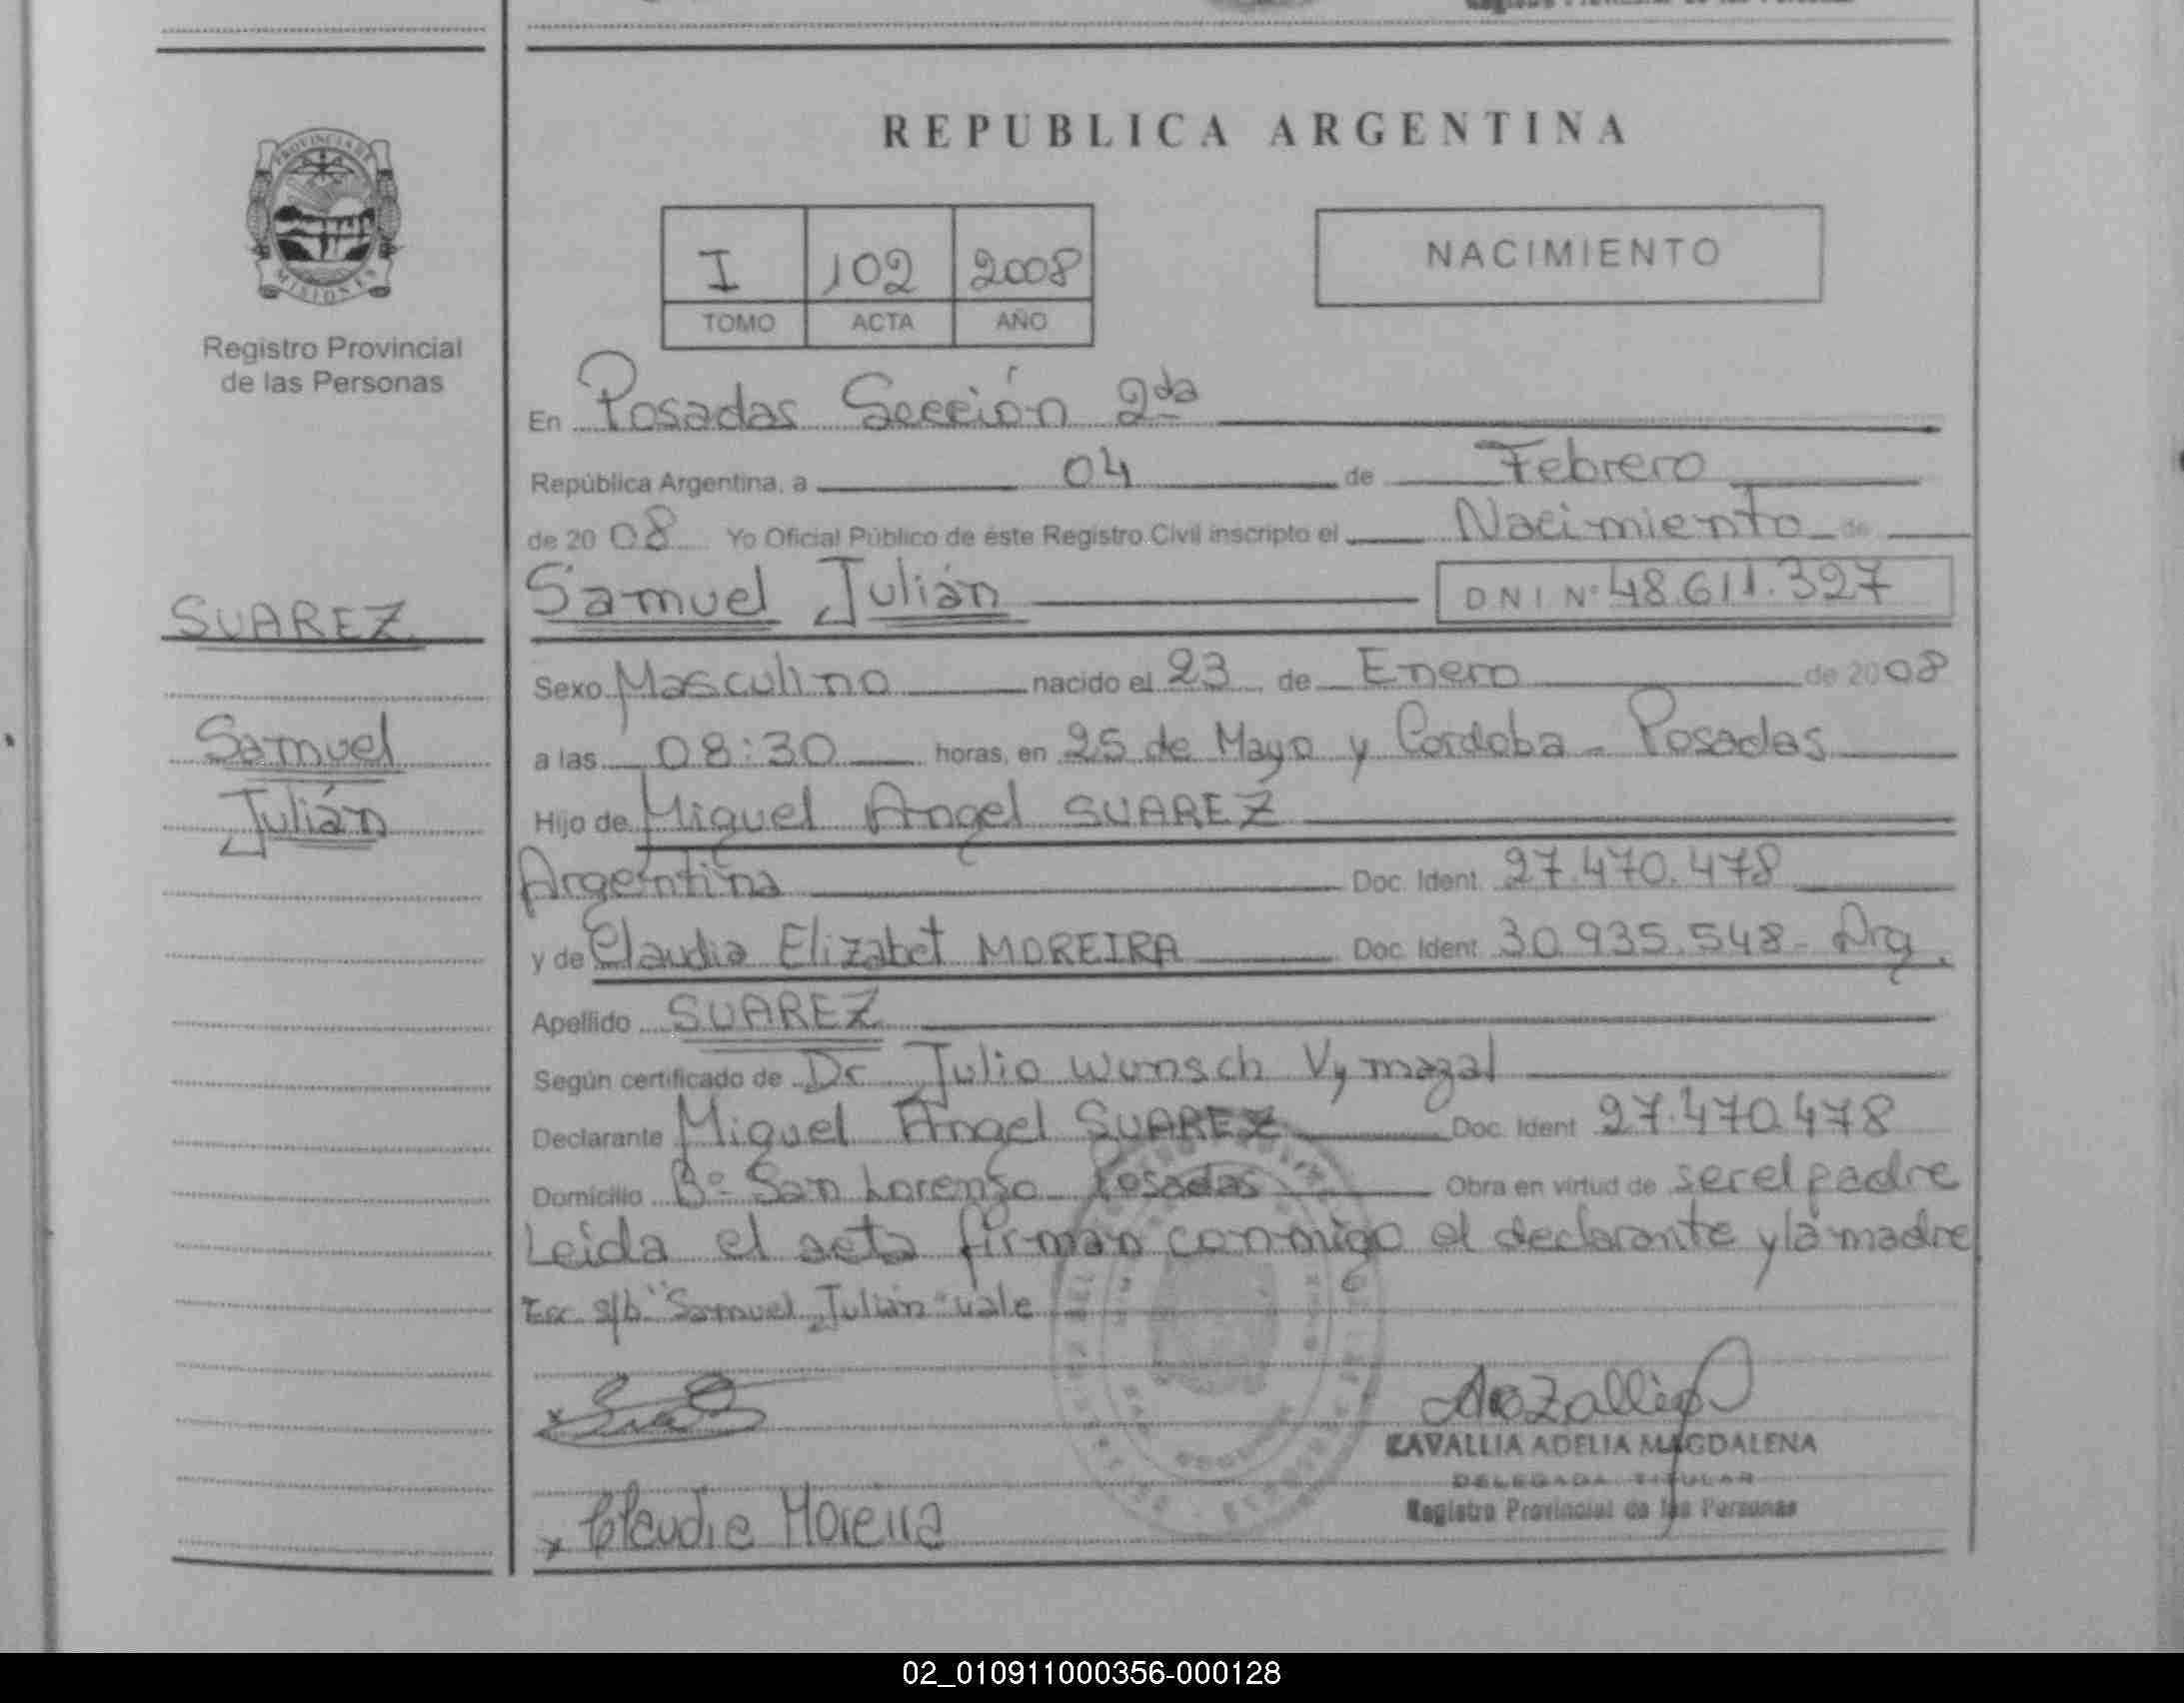 REPUBLICA ARGENTINA
PROVINCIA DE
MISIONES
Registro Provincial
de las Personas
I 102 2008
TOMO ACTA AÑO
NACIMIENTO
En Posadas Sección 2da
República Argentina, a 04 de Febrero
de 2008 Yo Oficial Público de éste Registro Civil inscripto el Nacimiento de
Samuel Julián DNI Nº 48.611.327
SUAREZ
Samuel
Julián
Sexo Masculino nacido el 23 de Enero de 2008
a las 08:30 horas, en 25 de Mayo y Cordoba - Posadas
Hijo de Miguel Angel SUAREZ
Argentina Doc. Ident. 27.470.478
y de Claudia Elizabet MOREIRA Doc. Ident. 30.935.548 - Arg.
Apellido SUAREZ
Según certificado de Dr Julio Wunsch Vymazal
Declarante Miguel Angel SUAREZ Doc. Ident. 27.470.478
Domicilio Bº San Lorenzo Posadas Obra en virtud de ser el padre
Leida el acta firman conmigo el declarante y la madre
Enc s/b "Samuel Julián" vale
x Claudia Moreira
ZAVALLIA ADELIA MAGDALENA
DELEGADA TITULAR
Registro Provincial de las Personas
02_010911000356-000128